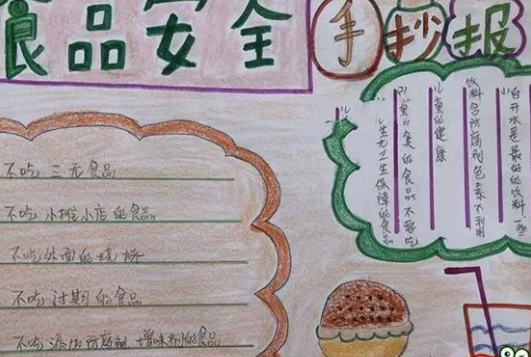 食品安全
手抄报
不吃三无食品
不吃小摊小店的食品
不吃外面的烧饼
不吃过期的食品
不吃添加防腐剂 增味剂的食品
白开水是最好的饮料 一些
饮料含防腐剂色素不利用
儿童的健康
的食品不要吃
生无卫生保障的食品